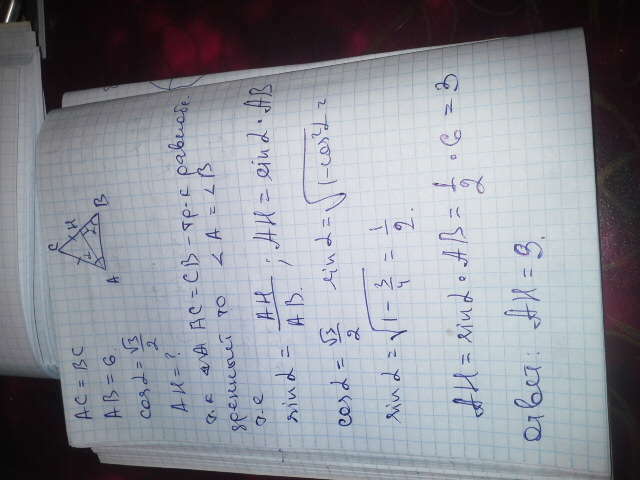 AC = BC
AB = 6
cos α = √3/2
AH = ?
C
H
α
α
A
B
т.к AC = CB – тр-к равнобе-
дренный то ∠A = ∠B
т.е
sin α = AH/AB ; AH = sin α · AB
cos α = √3/2 sin α = √(1-cos²α =
sin α = √(1 - 3/4) = 1/2.
AH = sin α · AB = 1/2 · 6 = 3
ответ: AH = 3.